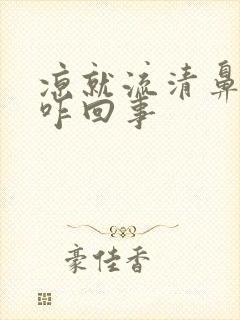 凉就流清鼻
咋回事
豪佳香